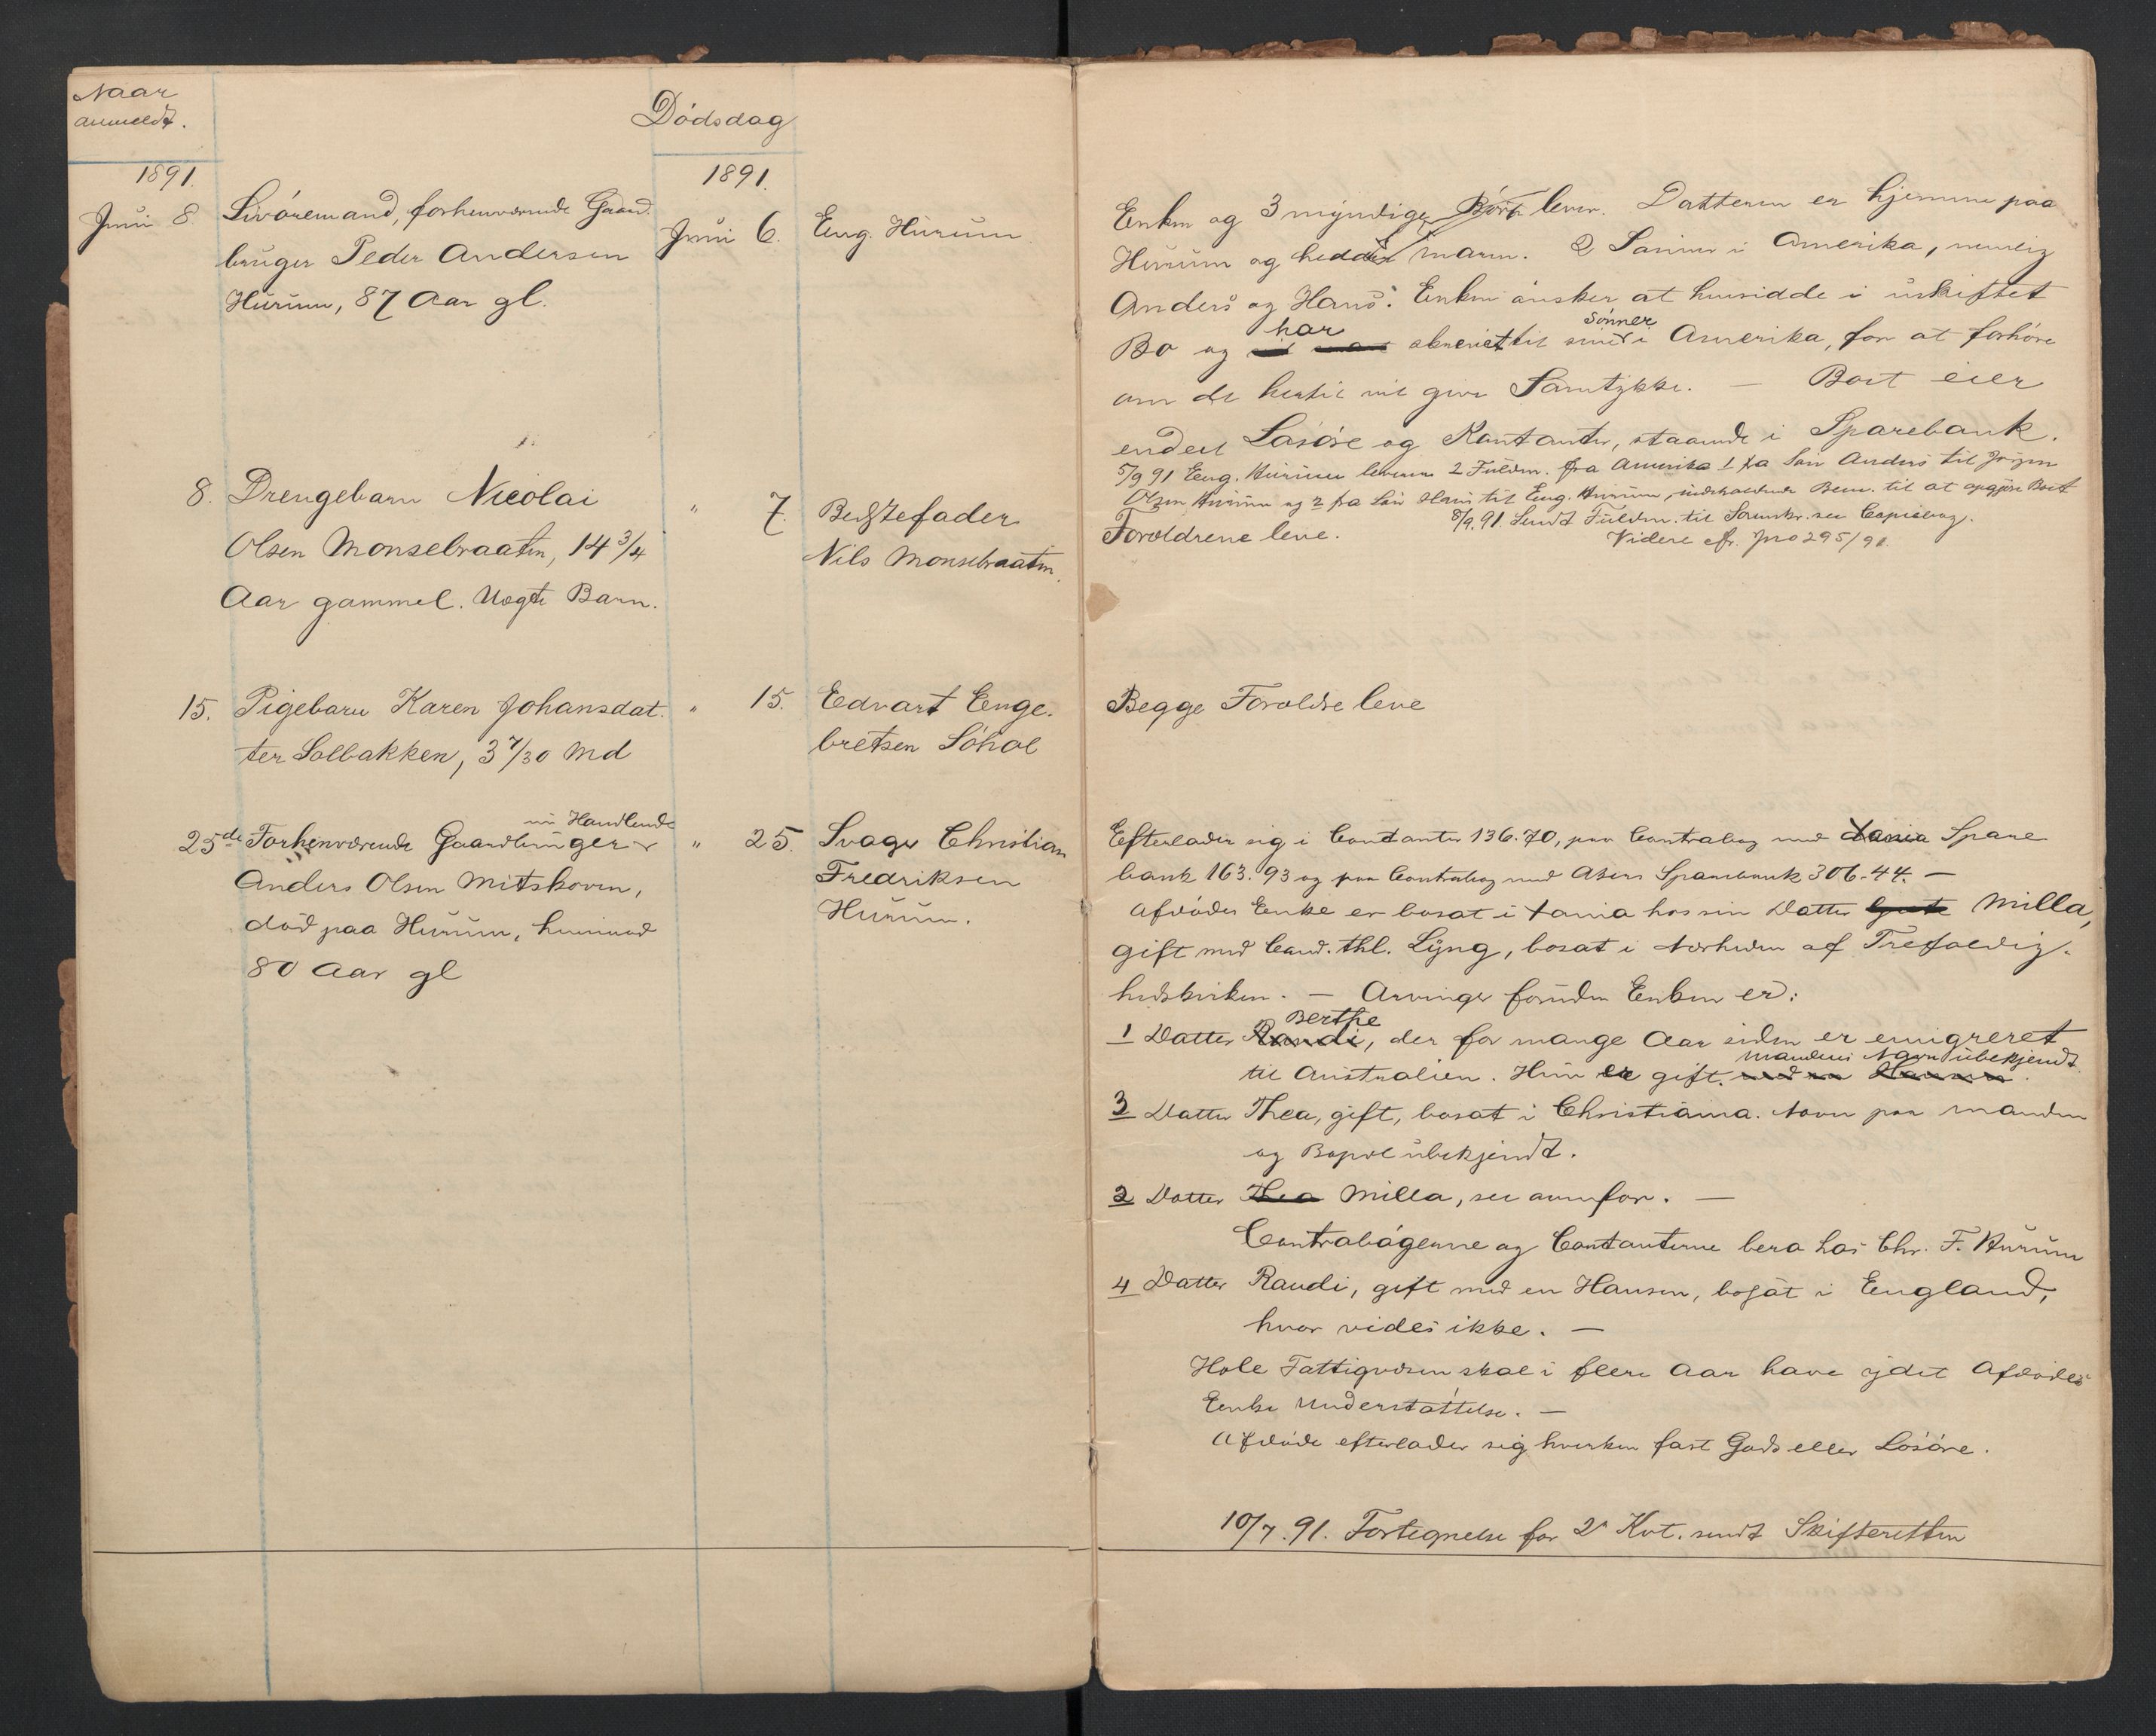 Naar
anmeldt.
Dödsdag
1891.
1891.
Juni 8. Livöremand, forhenværende Gaard
bruger Peder Andersen
Hurum, 87 Aar gl.
Juni 6. Eng. Hurum
Enken og 3 myndige Börn lever. Datteren er hjemme paa
Hurum og hedder Maren. 2 Sönner i Amerika, nemlig
Anders og Hans. Enken önsker at hensidde i uskiftet
Bo og har skrevet til sine Sönner i Amerika, for at forhöre
om de hertil vil give Samtykke. — Boet eier
endel Lösöre og Kontanter, staaende i Sparebank.
5/9 91 Eng. Hurum leverer 2 Fuldm. fra Amerika 1 fra Sön Anders til Jörgen
Olsen Hurum og 2 fra Sön Hans til Eng. Hurum, indeholdende Bem. til at opgjöre Boet
8/9. 91. Sendt Fuldm. til Sorenskr. see Copiebog.
Videre cfr. Jno 295/91.
8. Drengebarn Nicolai
Olsen Monsebraaten, 14 3/4
Aar gammel. Uægte Barn.
" 7. Bedstefader
Nils Monsebraaten.
Forældrene leve.
15. Pigebarn Karen Johansdat.
ter Solbakken, 3 7/30 Md
" 15. Edvart Enge.
bretsen Söhol
Begge Forældre leve
25de Forhenværende Gaardbruger nu Handlende
Anders Olsen Mitskoven,
död paa Hurum, henimod
80 Aar gl
" 25. Svager Christian
Fredriksen
Hurum.
Efterlader sig i Contanter 136.70, paa Contrabog med Xania Spare
bank 163.93 og paa Contrabog med Akers Sparebank 306.44. —
Afdödes Enke er bosat i Xania hos sin Datter Milla,
gift med Cand. thl. Lyng, bosat i Nærheden af Trefoldig.
hedskirken. — Arvinger foruden Enken er:
1 Datter Randi Berthe, der for mange Aar siden er emigreret
til Australien. Hun er gift. Mandens Navn ubekjendt.
3 Datter Thea, gift, bosat i Christiania. Navn paa Manden
og Bopæl ubekjendt.
2 Datter Thea Milla, see ovenfor. —
Contrabögerne og Contanterne bero hos Chr. F. Hurum
4 Datter Randi, gift med en Hansen, bosat i England,
hvor vides ikke. —
Hole Fattigvæsen skal i flere Aar have ydet Afdödes
Enke Understöttelse. —
Afdöde efterlader sig hverken fast Gods eller Lösöre.
10/7. 91. Fortegnelse for 2 Kvt. sendt Skifteretten